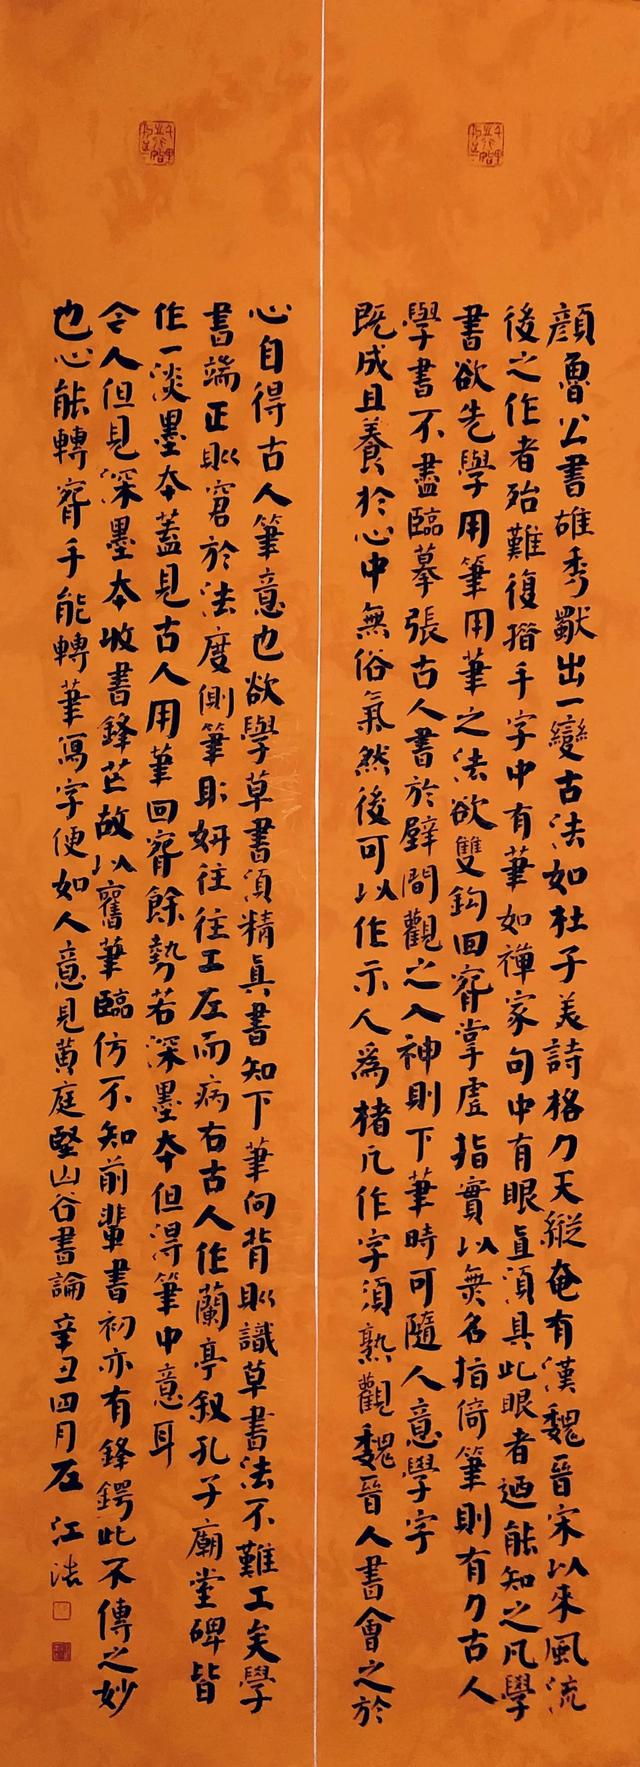 顔魯公書雄秀獨出一變古法如杜子美詩格力天縱奄有漢魏晉宋以來風流
後之作者殆難復措手字中有筆如禪家句中有眼直須具此眼者迺能知之凡學
書欲先學用筆用筆之法欲雙鈎回腕掌虛指實以無名指倚筆則有力古人
學書不盡臨摹張古人書於壁間觀之入神則下筆時可隨人意學字
既成且養於心中無俗氣然後可以作示人為楷凡作字須熟觀魏晉人書會之於
心自得古人筆意也欲學草書須精真書知下筆向背則識草書法不難工矣學
書端正則窘於法度側筆取妍往往工左而病右古人作蘭亭叙孔子廟堂碑皆
作一淡墨本蓋見古人用筆回腕餘勢若深墨本但得筆中意耳
今人但見深墨本收書鋒芒故以舊筆臨仿不知前輩書初亦有鋒鍔此不傳之妙
也心能轉腕手能轉筆寫字便如人意見黄庭堅山谷書論 辛丑四月左江法